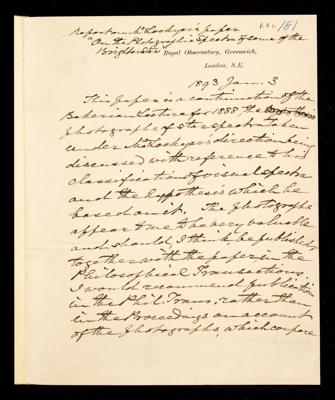 Report on Mr Lockyer's paper
"On the Photographic Spectra of some of the
Brighter Stars"
181
Royal Observatory, Greenwich,
London, S.E.
1893 Jan. 3
This paper is a continuation of the
Bakerian Lecture for 1888, the
photographs of star spectra taken
under Mr Lockyer's direction being
discussed with reference to his
classification of visual spectra
and the hypothesis which he
based on it. The photographs
appear to me to be very valuable
and should, I think, be published
together with the paper in the
Philosophical Transactions.
I would recommend publication
in the Phil. Trans. rather than
in the Proceedings on account
of the photographs, which compare